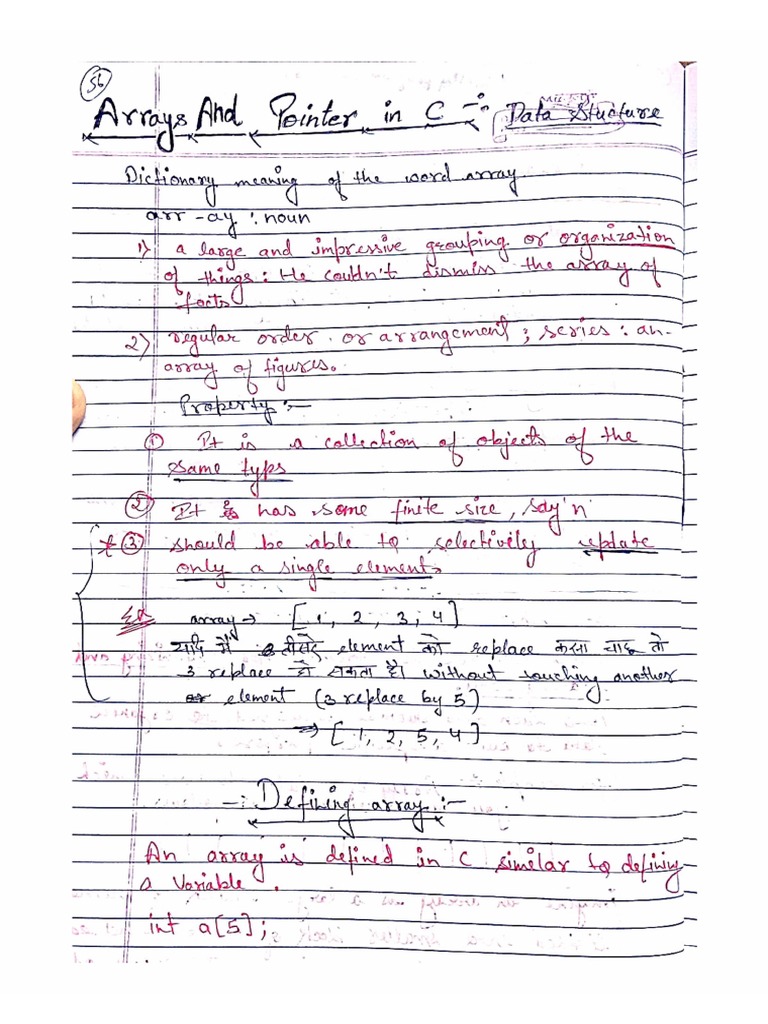 56
Arrays And Pointer in C -:- Data Structure
Dictionary meaning of the word array
arr-ay : noun
1) a large and impressive grouping or organization
of things : He couldn't dismiss the array of
facts
2) regular order or arrangement ; series : an
array of figures.
Property :-
① It is a collection of objects of the
same type
② It has some finite size, say 'n'
* ③ should be able to selectively update
only a single element.
Ex array → [1, 2, 3, 4]
यदि मैं तीसरे element को replace करना चाहू तो
3 replace हो सकता है। without touching another
element (3 replace by 5)
→ [1, 2, 5, 4]
-: Defining array :-
An array is defined in C similar to defining
a variable .
int a[5];